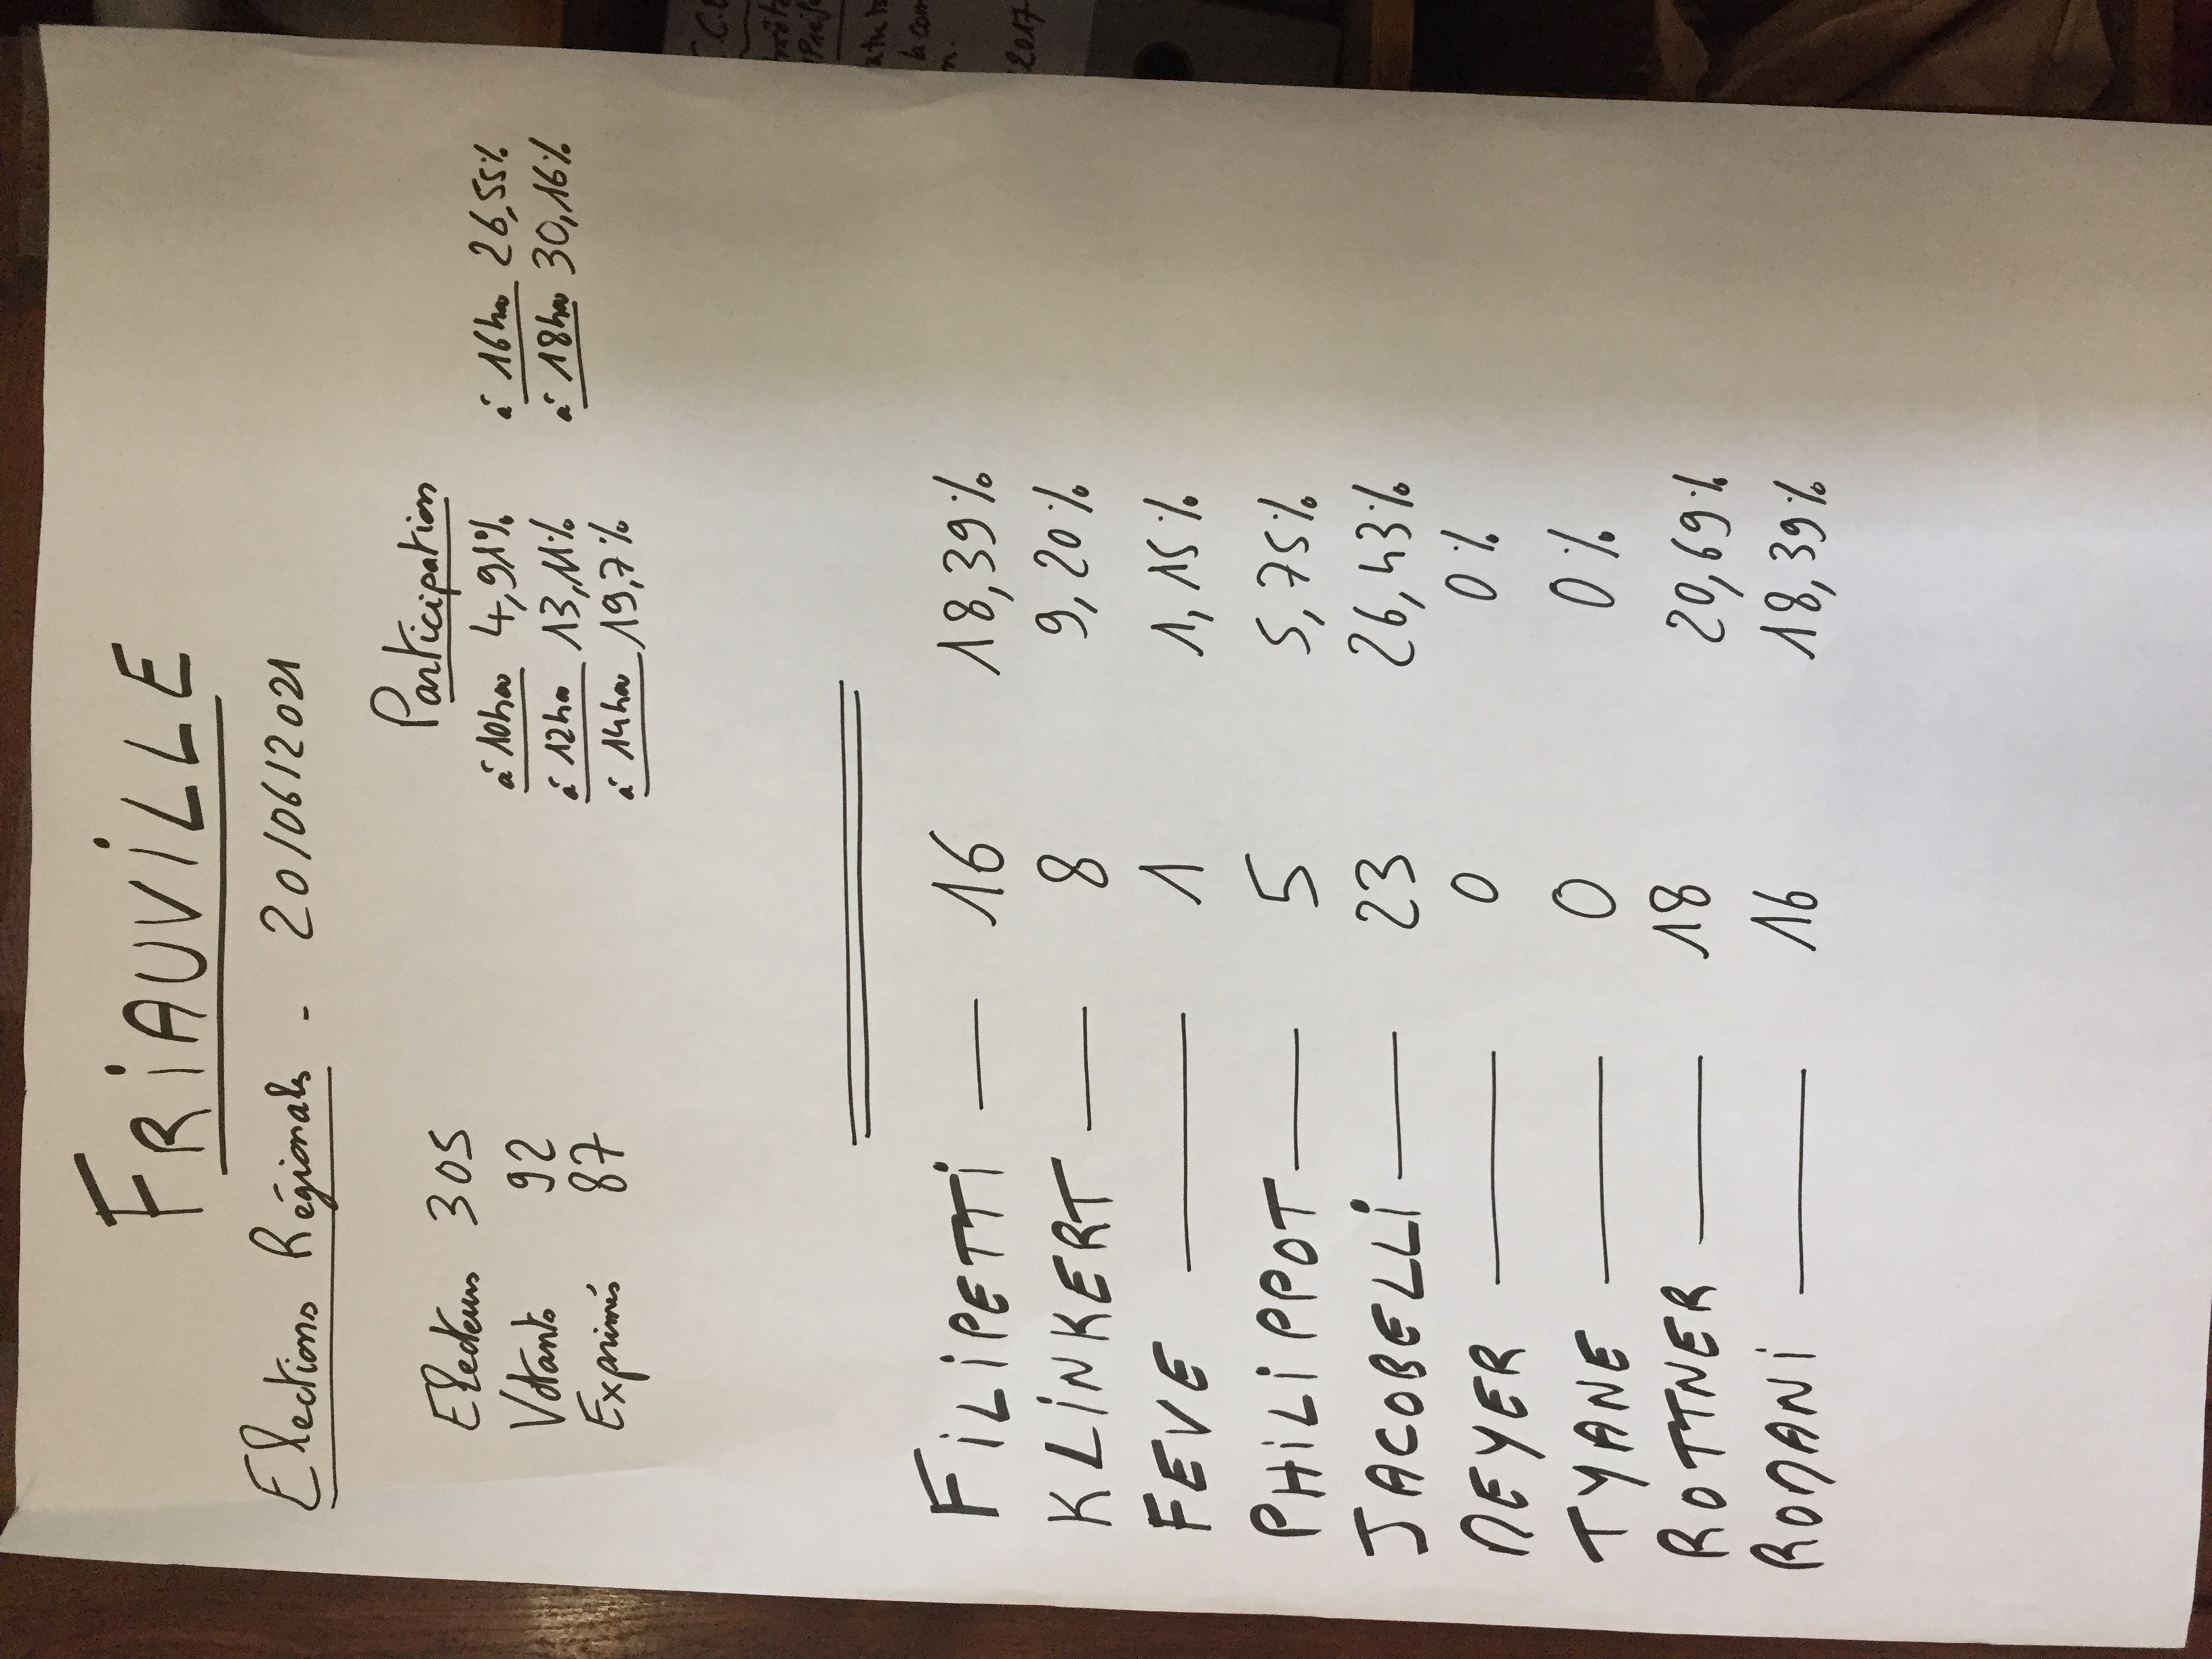 FRIAUVILLE
Elections Régionales - 20/06/2021
Participation
Electeurs 305
à 10hrs 4,91%
à 16hrs 26,55%
Votants 92
à 12hrs 13,11%
à 18hrs 30,16%
Exprimés 87
à 14hrs 19,7%
FILIPETTI — 16 18,39%
KLINKERT — 8 9,20%
FEVE — 1 1,15%
PHILIPPOT — 5 5,75%
JACOBELLI — 23 26,43%
MEYER — 0 0%
TYANE — 0 0%
ROTTNER — 18 20,69%
ROMANI — 16 18,39%
2017